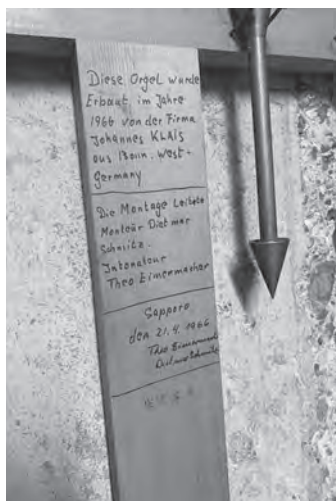 Diese Orgel wurde
Erbaut im Jahre
1966 von der Firma
Johannes KLAIS
aus Bonn. West-
Germany
Die Montage Leitete
Monteur Dietmar
Schmitz.
Intonateur
Theo Eimermacher
Sapporo
den 21.4.1966
Theo Eimermach
Dietmar Schmitz